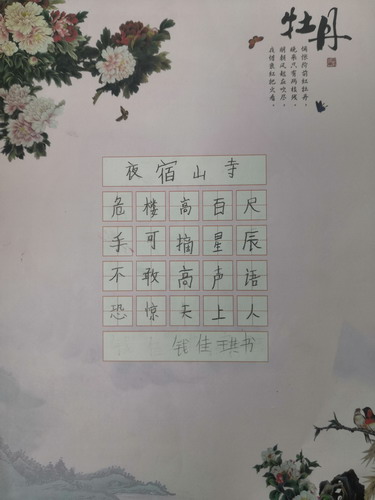 牡丹
惆怅阶前红牡丹，
晚来只有两枝残。
明朝风起应吹尽，
夜惜衰红把火看。
夜宿山寺
危楼高百尺
手可摘星辰
不敢高声语
恐惊天上人
钱佳琪书